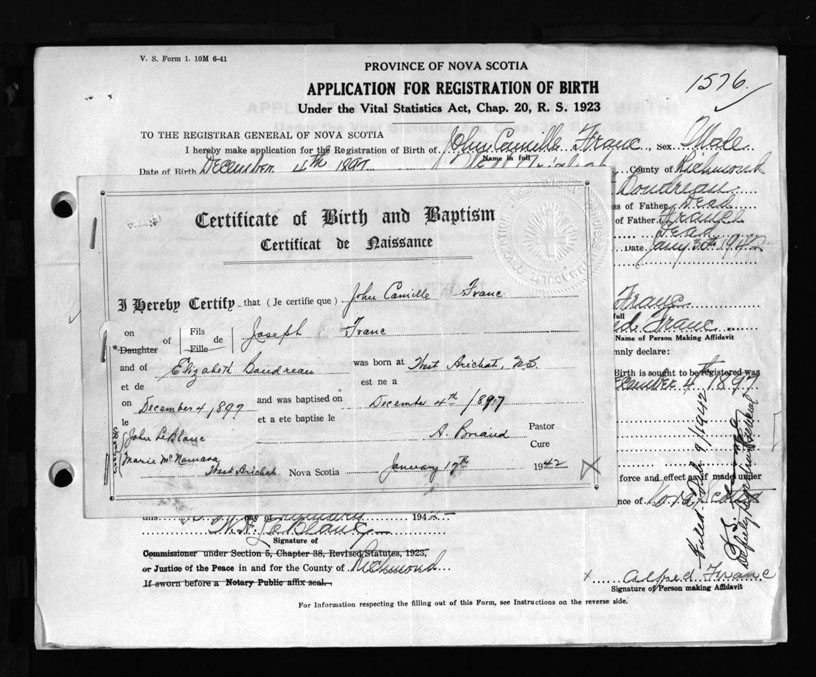 V. S. Form 1. 10M 6-41
PROVINCE OF NOVA SCOTIA
APPLICATION FOR REGISTRATION OF BIRTH
Under the Vital Statistics Act, Chap. 20, R. S. 1923
1576.
TO THE REGISTRAR GENERAL OF NOVA SCOTIA
I hereby make application for the Registration of Birth of John Camille Franc, Sex Male
Name in full
Date of Birth December 4th 1897 County of Richmond
Boudreau
ss of Father Dead
of Father France
Dead
Date Jany 30th 1942
Certificate of Birth and Baptism
Certificat de Naissance
I Hereby Certify that (Je certifie que) John Camille Franc
on Daughter of Fils Fille de Joseph Franc
and of et de Elizabeth Boudreau was born at est ne a West Arichat, N.S.
on le December 4, 1897 and was baptised on et a ete baptise le December 4th 1897
John LeBlanc A. Briand Pastor Cure
Marie McNamara
West Arichat Nova Scotia January 17th 1942
Franc
full
ed Franc
Name of Person Making Affidavit
mnly declare:
Birth is sought to be registered was
ecember 4th 1897
force and effect as if made under
nce of Nova Scotia
Filed Feb. 9/1942
Deputy Registrar General
this 194
LeBlanc
Signature of
Commissioner under Section 5, Chapter 38, Revised Statutes, 1923,
or Justice of the Peace in and for the County of Richmond
If sworn before a Notary Public affix seal.
x Alfred Franc
Signature of Person making Affidavit
For Information respecting the filling out of this Form, see Instructions on the reverse side.